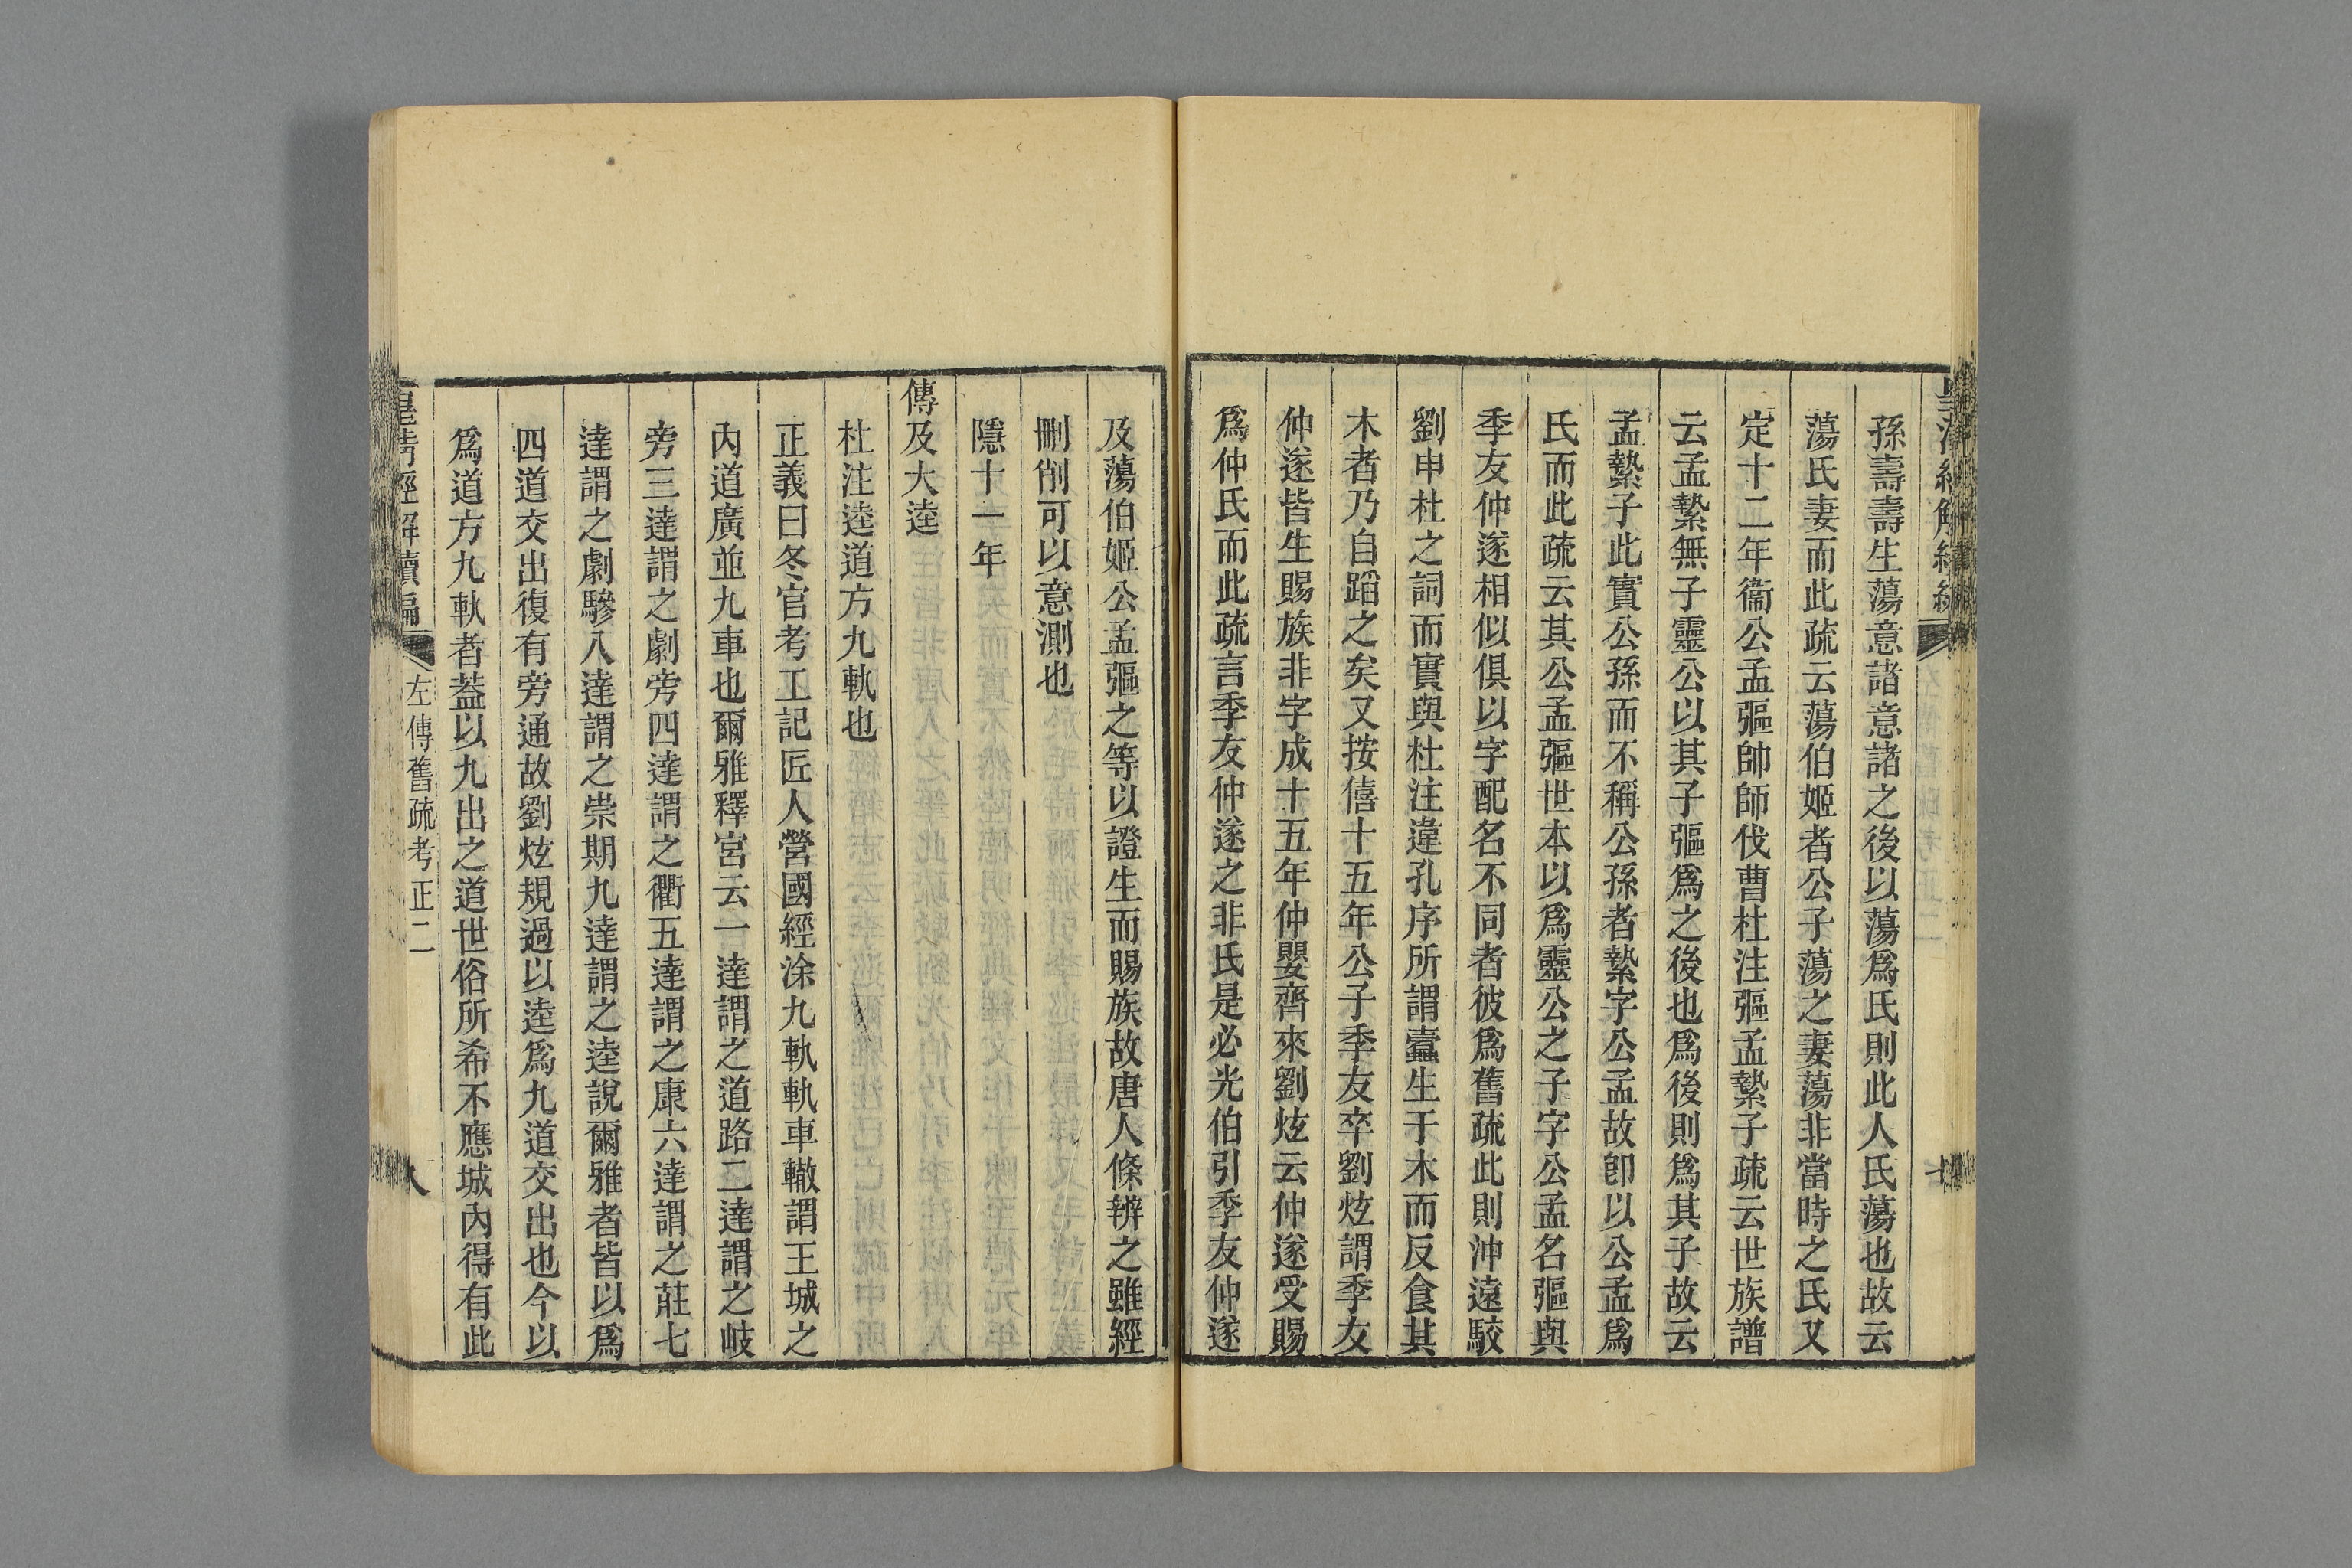 孫壽壽生蕩意諸意諸之後以蕩爲氏則此人氏蕩也故云
蕩氏妻而此疏云蕩伯姬者公子蕩之妻蕩非當時之氏又
定十二年衞公孟彄帥師伐曹杜注彄孟縶子疏云世族譜
云孟縶無子靈公以其子彄爲之後也爲後則爲其子故云
孟縶子此實公孫而不稱公孫者縶字公孟故卽以公孟爲
氏而此疏云其公孟彄世本以爲靈公之子字公孟名彄與
季友仲遂相似俱以字配名不同者彼爲舊疏此則沖遠駮
劉申杜之詞而實與杜注違孔序所謂蠹生于木而反食其
木者乃自蹈之矣又按僖十五年公子季友卒劉炫謂季友
仲遂皆生賜族非字成十五年仲嬰齊來劉炫云仲遂受賜
爲仲氏而此疏言季友仲遂之非氏是必光伯引季友仲遂
及蕩伯姬公孟彄之等以證生而賜族故唐人條辨之雖經
刪削可以意測也
隱十一年
傳及大逵
杜注逵道方九軌也
正義曰冬官考工記匠人營國經涂九軌軌車轍謂王城之
內道廣並九車也爾雅釋宮云一達謂之道路二達謂之岐
旁三達謂之劇旁四達謂之衢五達謂之康六達謂之莊七
達謂之劇驂八達謂之崇期九達謂之逵說爾雅者皆以爲
四道交出復有旁通故劉炫規過以逵爲九道交出也今以
爲道方九軌者蓋以九出之道世俗所希不應城內得有此
皇清經解續編
左傳舊疏考正二
八